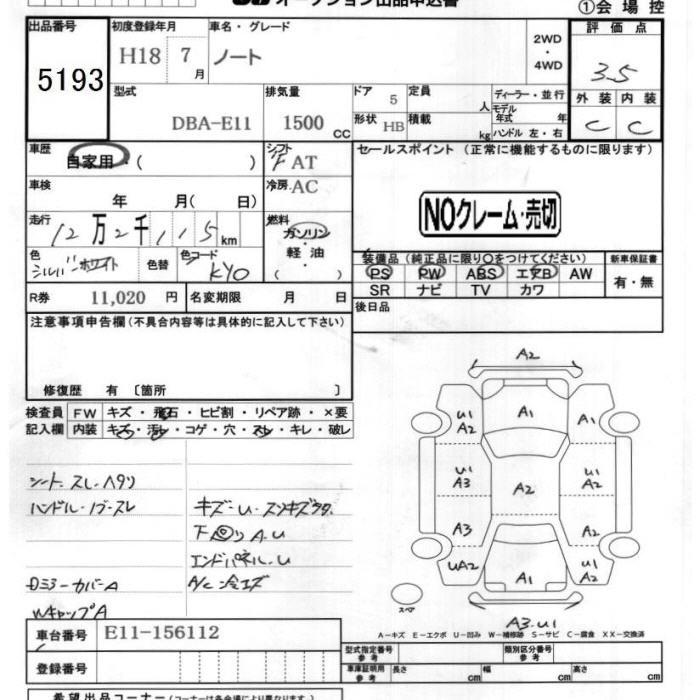 オークション出品申込書
①会場控
出品番号
5193
初度登録年月
H18 7月
車名・グレード
ノート
2WD
・
4WD
評価点
3.5
型式
DBA-E11
排気量
1500 CC
ドア 5
形状 HB
定員 人
積載 kg
ディーラー・並行
モデル年式 年
ハンドル 左・右
外装 内装
C C
車歴
自家用 ( )
シフト
F AT
セールスポイント (正常に機能するものに限ります)
車検
年 月( 日)
冷房 AC
NOクレーム・売切
走行
12万2千115km
燃料
ガソリン
・
軽油
( )
色
シルバーホワイト
色替
色コード
KY0
装備品 (純正品に限り○をつけてください)
新車保証書
PS PW ABS エアB AW
SR ナビ TV カワ
有・無
R券 11,020 円
名変期限 月 日
後日品
注意事項申告欄 (不具合内容等は具体的に記入して下さい)
修復歴 有 〔箇所 〕
検査員記入欄
FW キズ・飛石・ヒビ割・リペア跡・×要
内装 キズ・汚レ・コゲ・穴・スレ・キレ・破レ
シート スレ・ヘタリ
ハンドル・ノブ・スレ
キズ・U・スリキズ多数
下回りA.U
エンドパネル・U
A/C冷エズ
ロミラーカバーA
WキャップA
A2
U1
A2
A1
A1
U1
A3
A2
U1
A2
A3
A2
UA2
A1
A2
スペア
A3・U1
A－キズ E－エクボ U－凹み W－補修跡 S－サビ C－腐食 XX－交換済
車台番号 E11-156112
登録番号
型式指定番号 参考
類別区分番号 参考
車庫証明用 参考
長さ cm
幅 cm
高さ cm
希望出品コーナー (コーナーは各会場により異なります。)